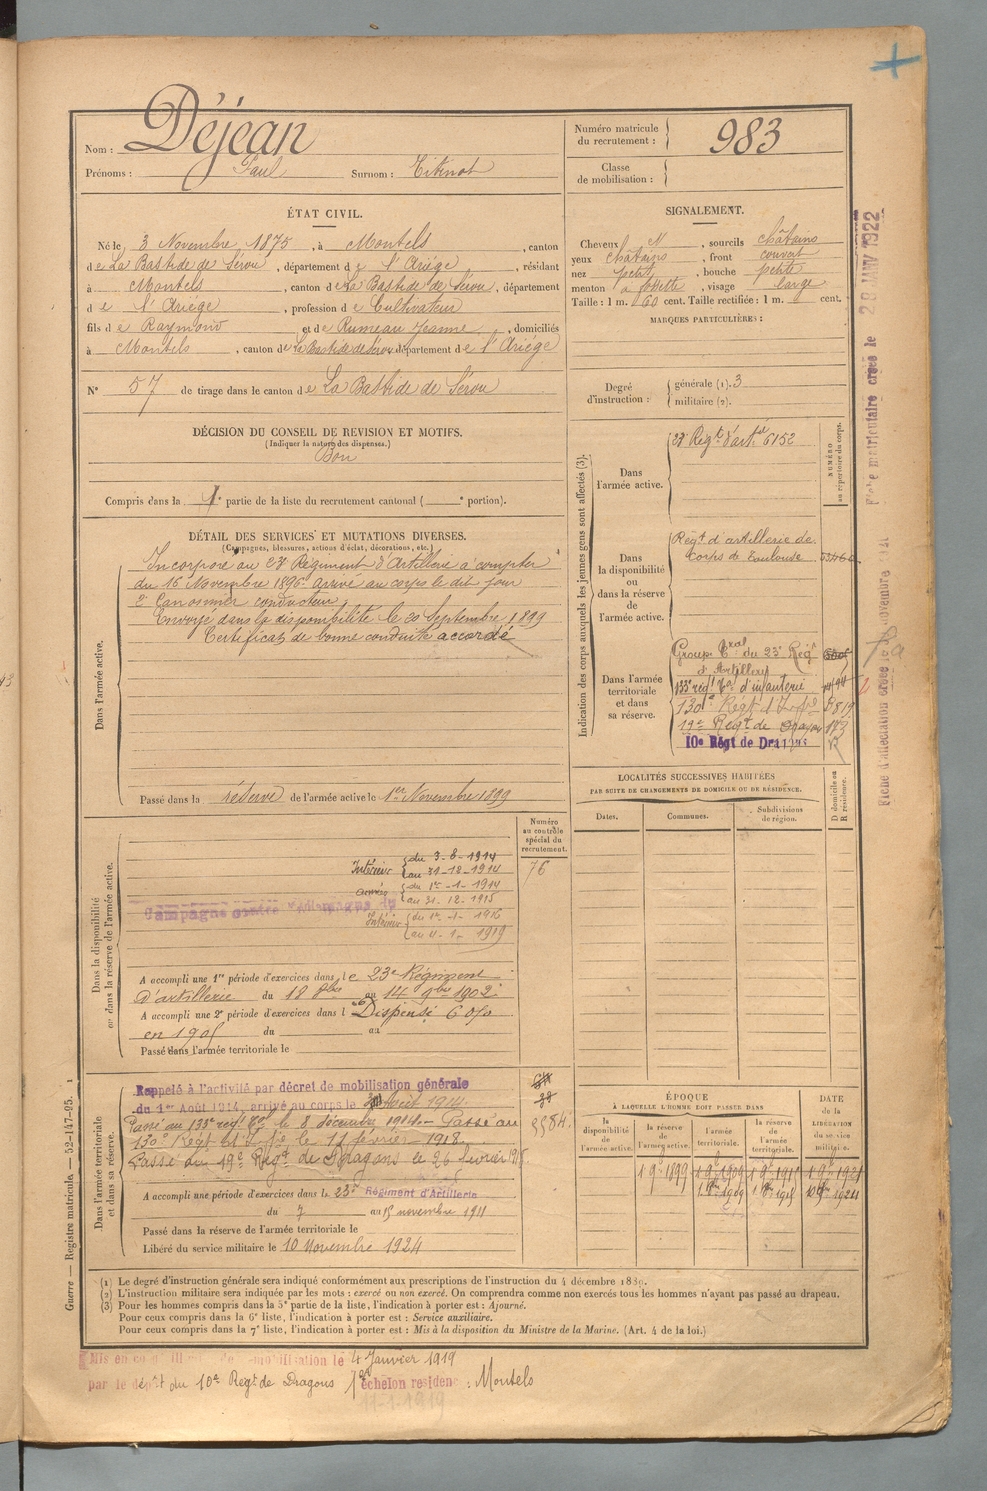 Nom : Déjean
Prénoms : Paul Surnom : Titinot
Numéro matricule du recrutement : 983
Classe de mobilisation :
ÉTAT CIVIL.
Né le 3 Novembre 1875, à Montels, canton
de La Bastide de Sérou, département de l'Ariège, résidant
à Montels, canton de La Bastide de Sérou, département
de l'Ariège, profession de Cultivateur
fils de Raymond et de Rumeau Jeanne, domiciliés
à Montels, canton de La Bastide de Sérou département de l'Ariège
N° 57 de tirage dans le canton de La Bastide de Sérou
SIGNALEMENT.
Cheveux N, sourcils châtains
yeux châtains, front couvert
nez petit, bouche petite
menton à fossette, visage large
Taille : 1 m. 60 cent. Taille rectifiée : 1 m. cent.
MARQUES PARTICULIÈRES :
Degré d'instruction : générale (1). 3
militaire (2).
DÉCISION DU CONSEIL DE REVISION ET MOTIFS.
(Indiquer la nature des dispenses.)
Bon
Compris dans la 1e partie de la liste du recrutement cantonal ( e portion).
DÉTAIL DES SERVICES ET MUTATIONS DIVERSES.
(Campagnes, blessures, actions d'éclat, décorations, etc.)
Dans l'armée active.
Incorporé au 23e Régiment d'Artillerie à compter
du 16 Novembre 1896. Arrivé au corps le dit jour
2e Canonnier conducteur
Envoyé dans la disponibilité le 20 Septembre 1899
Certificat de bonne conduite accordé
Passé dans la réserve de l'armée active le 1er Novembre 1899
Indication des corps auxquels les jeunes gens sont affectés (3).
NUMÉRO au répertoire du corps.
Dans l'armée active.
23e Régt d'artie 6152
Dans la disponibilité ou dans la réserve de l'armée active.
Régt d'artillerie de
Corps de Toulouse
Dans l'armée territoriale et dans sa réserve.
Groupe Tral du 23e Régt
d'Artillery
133e régt Tal d'infanterie
130e Régt d'Infie
19e Régt de Dragons 173
10e Régt de Dragons
LOCALITÉS SUCCESSIVES HABITÉES
PAR SUITE DE CHANGEMENTS DE DOMICILE OU DE RÉSIDENCE.
Dates. Communes. Subdivisions de région. D domicile ou R résidence.
Dans la disponibilité ou dans la réserve de l'armée active.
Numéro au contrôle spécial du recrutement.
76
Campagne contre l'Allemagne du
Intérieur du 3-8-1914
au 31-12-1914
armées du 1er-1-1914
au 31.12.1915
Intérieur du 1er-1-1916
au 11-1-1919
A accompli une 1re période d'exercices dans le 23e Régiment
d'artillerie du 18 8bre au 14 9bre 1902
A accompli une 2e période d'exercices dans l Dispensé 6 0/0
en 1905 du au
Passé dans l'armée territoriale le
Dans l'armée territoriale et dans sa réserve.
Rappelé à l'activité par décret de mobilisation générale
du 1er Août 1914, arrivé au corps le 3 Août 1914.
Passé au 133e régt Tal le 8 décembre 1914. Passé au
130e Régt Ial d'Infie le 11 février 1918
Passé au 19e Régt de Dragons le 26 février 1918
A accompli une période d'exercices dans le 23e Régiment d'Artillerie
du 7 au 15 novembre 1911
Passé dans la réserve de l'armée territoriale le
Libéré du service militaire le 10 Novembre 1924
ÉPOQUE
À LAQUELLE L'HOMME DOIT PASSER DANS
la disponibilité de l'armée active. la réserve de l'armée active. l'armée territoriale. la réserve de l'armée territoriale.
DATE de la LIBÉRATION du service militaire.
1 9e 1899
Guerre — Registre matricule. — 52-147-95. 1
(1) Le degré d'instruction générale sera indiqué conformément aux prescriptions de l'instruction du 4 décembre 1889.
(2) L'instruction militaire sera indiquée par les mots : exercé ou non exercé. On comprendra comme non exercés tous les hommes n'ayant pas passé au drapeau.
(3) Pour les hommes compris dans la 5e partie de la liste, l'indication à porter est : Ajourné.
Pour ceux compris dans la 6e liste, l'indication à porter est : Service auxiliaire.
Pour ceux compris dans la 7e liste, l'indication à porter est : Mis à la disposition du Ministre de la Marine. (Art. 4 de la loi.)
Mis en congé illimité de démobilisation le 4 Janvier 1919
par le dépôt du 10e Régt de Dragons 1er échelon residence : Montels
11-1-1919
Fiche matriculaire créée le 28 JANV 1922